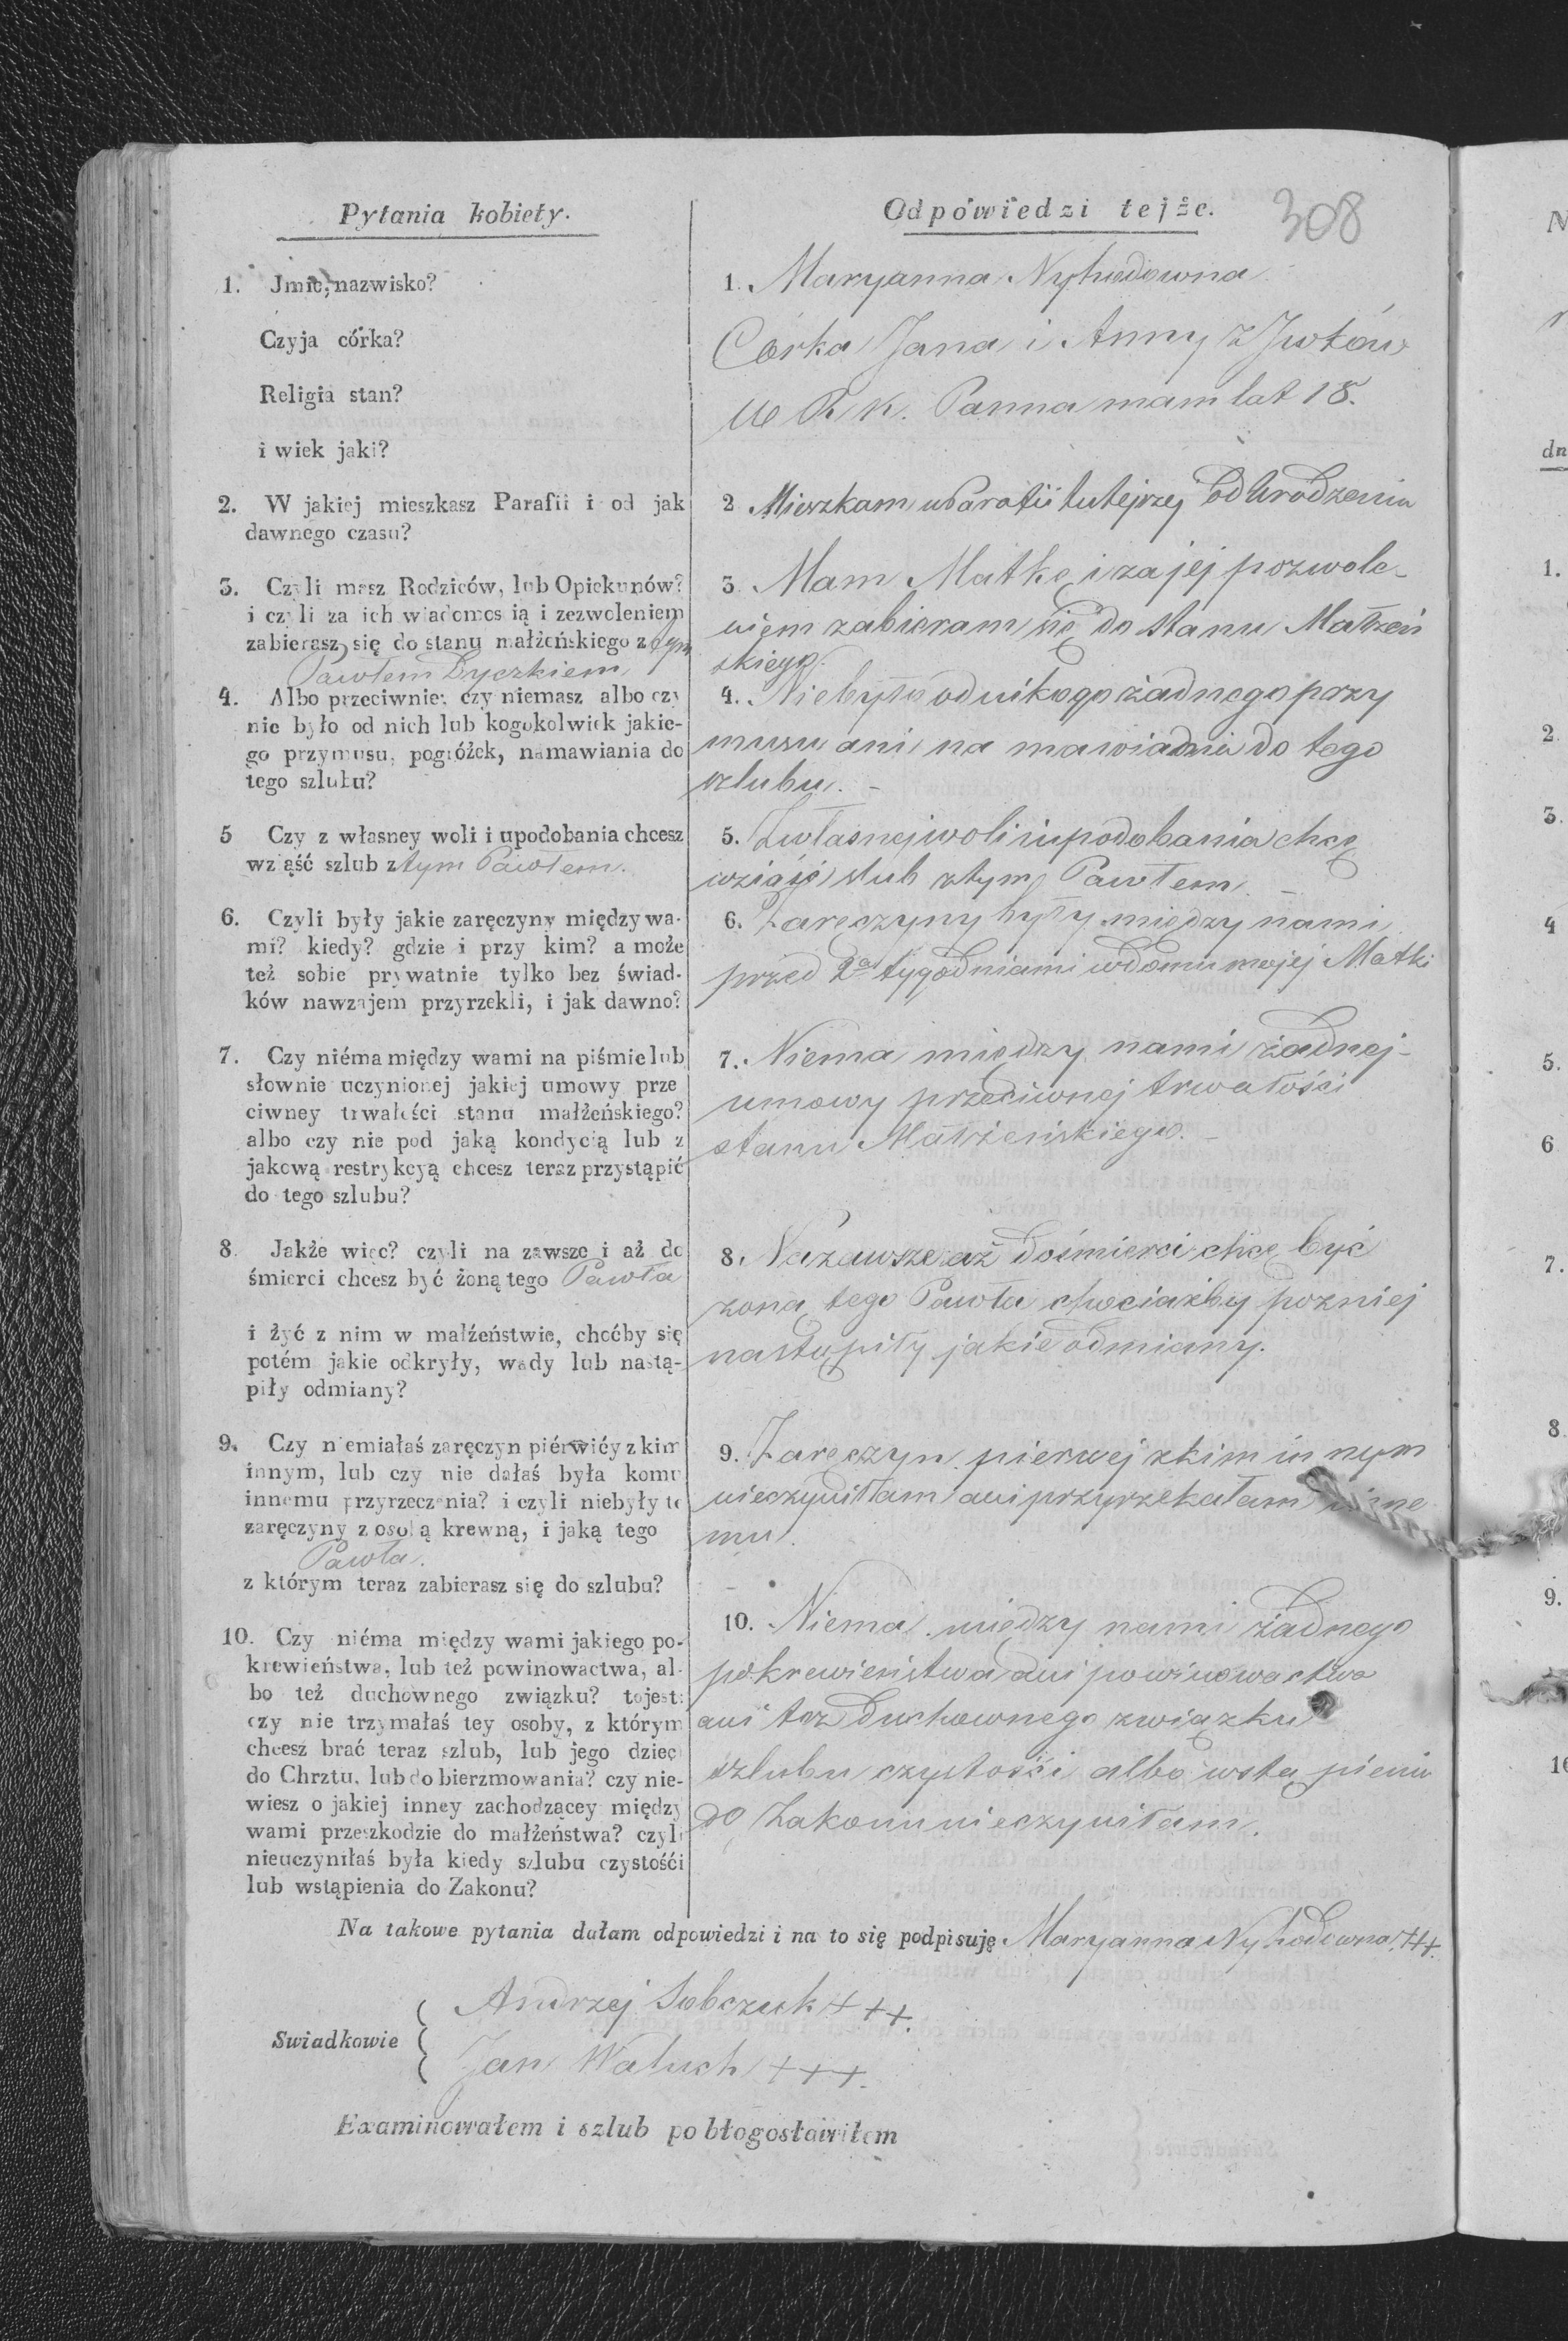 Pytania kobiety.
Odpowiedzi tejże.
308
1. Jmie, nazwisko?
Czyja córka?
Religia stan?
i wiek jaki?
1. Maryanna Nyhodowna
Córka Jana i Anny z Iwków
W R. K. Panna mam lat 18.
2. W jakiej mieszkasz Parafii i od jak
dawnego czasu?
2 Mieszkam w Parafii tutejszej od Urodzenia
3. Czyli masz Rodziców, lub Opiekunów?
i czyli za ich wiadomością i zezwoleniem
zabierasz się do stanu małżeńskiego z tym
Pawłem Byczkiem
3. Mam Matkę i za jej pozwole-
niem zabieram się do stanu Małżeń
skiego.
4. Albo przeciwnie: czy niemasz albo czy
nie było od nich lub kogokolwiek jakie-
go przymusu, pogróżek, namawiania do
tego szlubu?
4. Niebyło od nikogo żadnego przy
musu ani na mawiania do tego
szlubu. -
5 Czy z własney woli i upodobania chcesz
wziąść szlub z tym Pawłem.
5. Z własnej woli i upodobania chcę
wziąść slub z tym Pawłem. -
6. Czyli były jakie zaręczyny między wa-
mi? kiedy? gdzie i przy kim? a może
też sobie prywatnie tylko bez świad-
ków nawzajem przyrzekli, i jak dawno?
6. Zaręczyny były między nami
przed 2a tygodniami w domu mojej Matki
7. Czy niéma między wami na piśmie lub
słownie uczynionej jakiej umowy prze
ciwney trwałości stanu małżeńskiego?
albo czy nie pod jaką kondycią lub z
jakową restrykcyą chcesz teraz przystąpić
do tego szlubu?
7. Niema między nami żadnej-
umowy przeciwnej trwałości
stanu Małżeńskiego. -
8. Jakże więc? czyli na zawsze i aż do
śmierci chcesz być żoną tego Pawła
i żyć z nim w małżeństwie, choćby się
potém jakie odkryły, wady lub nastą-
piły odmiany?
8. Na zawsze aż do śmierci chcę być
zoną tego Pawła chociażby pozniej
nastąpiły jakie odmiany.
9. Czy niemiałaś zaręczyn piérwiéy z kim
innym, lub czy nie dałaś była komu
innemu przyrzeczenia? i czyli niebyły te
zaręczyny z osobą krewną, i jaką tego
Pawła.
z którym teraz zabierasz się do szlubu?
9. Zaręczyn pierwej z kim in nym
nieczyniłam ani przyrzekałam inne
mu.
10. Czy niéma między wami jakiego po-
krewieństwa, lub też powinowactwa, al-
bo też duchownego związku? tojest:
czy nie trzymałaś tey osoby, z którym
chcesz brać teraz szlub, lub jego dzieci
do Chrztu, lub do bierzmowania? czy nie-
wiesz o jakiej inney zachodzącey między
wami przeszkodzie do małżeństwa? czyli
nieuczyniłaś była kiedy szlubu czystośći
lub wstąpienia do Zakonu?
10. Niema między nami żadnego
pokrewieństwa ani powinowactwa
ani tez duchownego związku
szlubu czystości albo wstą pienia
do Zakonu nieczyniłam.
Na takowe pytania dałam odpowiedzi i na to się podpisuję Maryanna Nyhodowna +++.
Swiadkowie
Andrzej Sobczuk +++.
Jan Waluch +++.
Examinowałem i szlub pobłogosławiłem